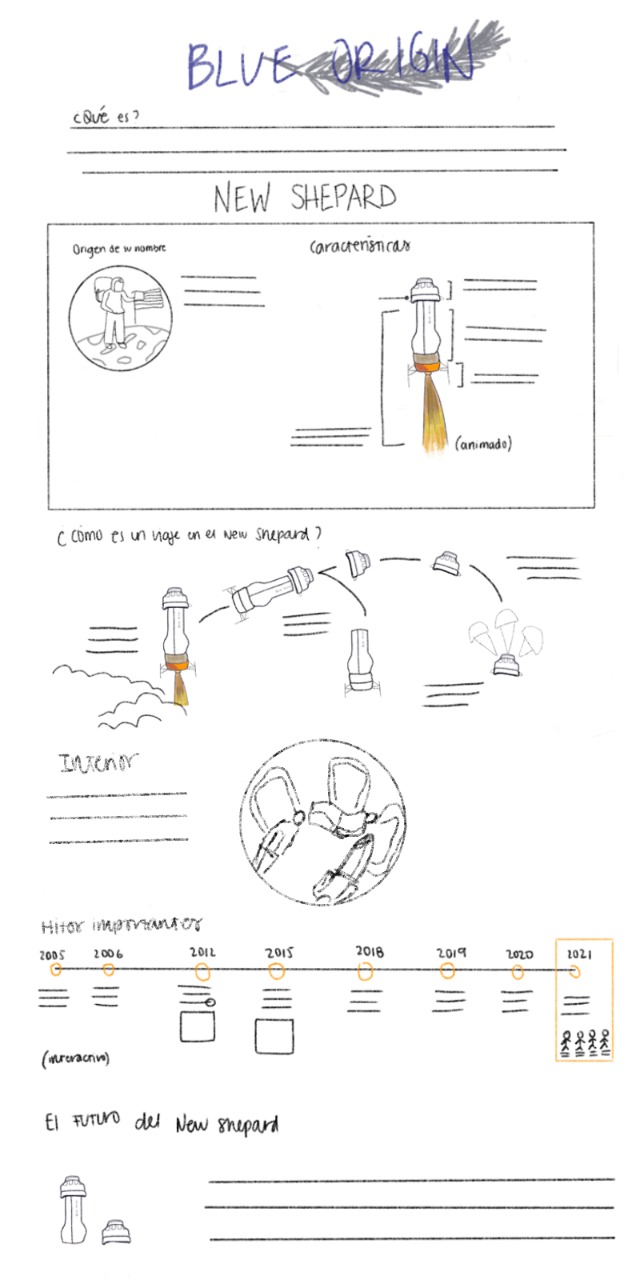 BLUE ORIGIN
¿Qué es?
NEW SHEPARD
Origen de su nombre
Características
(animado)
¿Cómo es un viaje en el New Shepard?
Interior
Hitos importantes
2005 2006 2012 2015 2018 2019 2020 2021
(interactivo)
El FUTURO del New Shepard